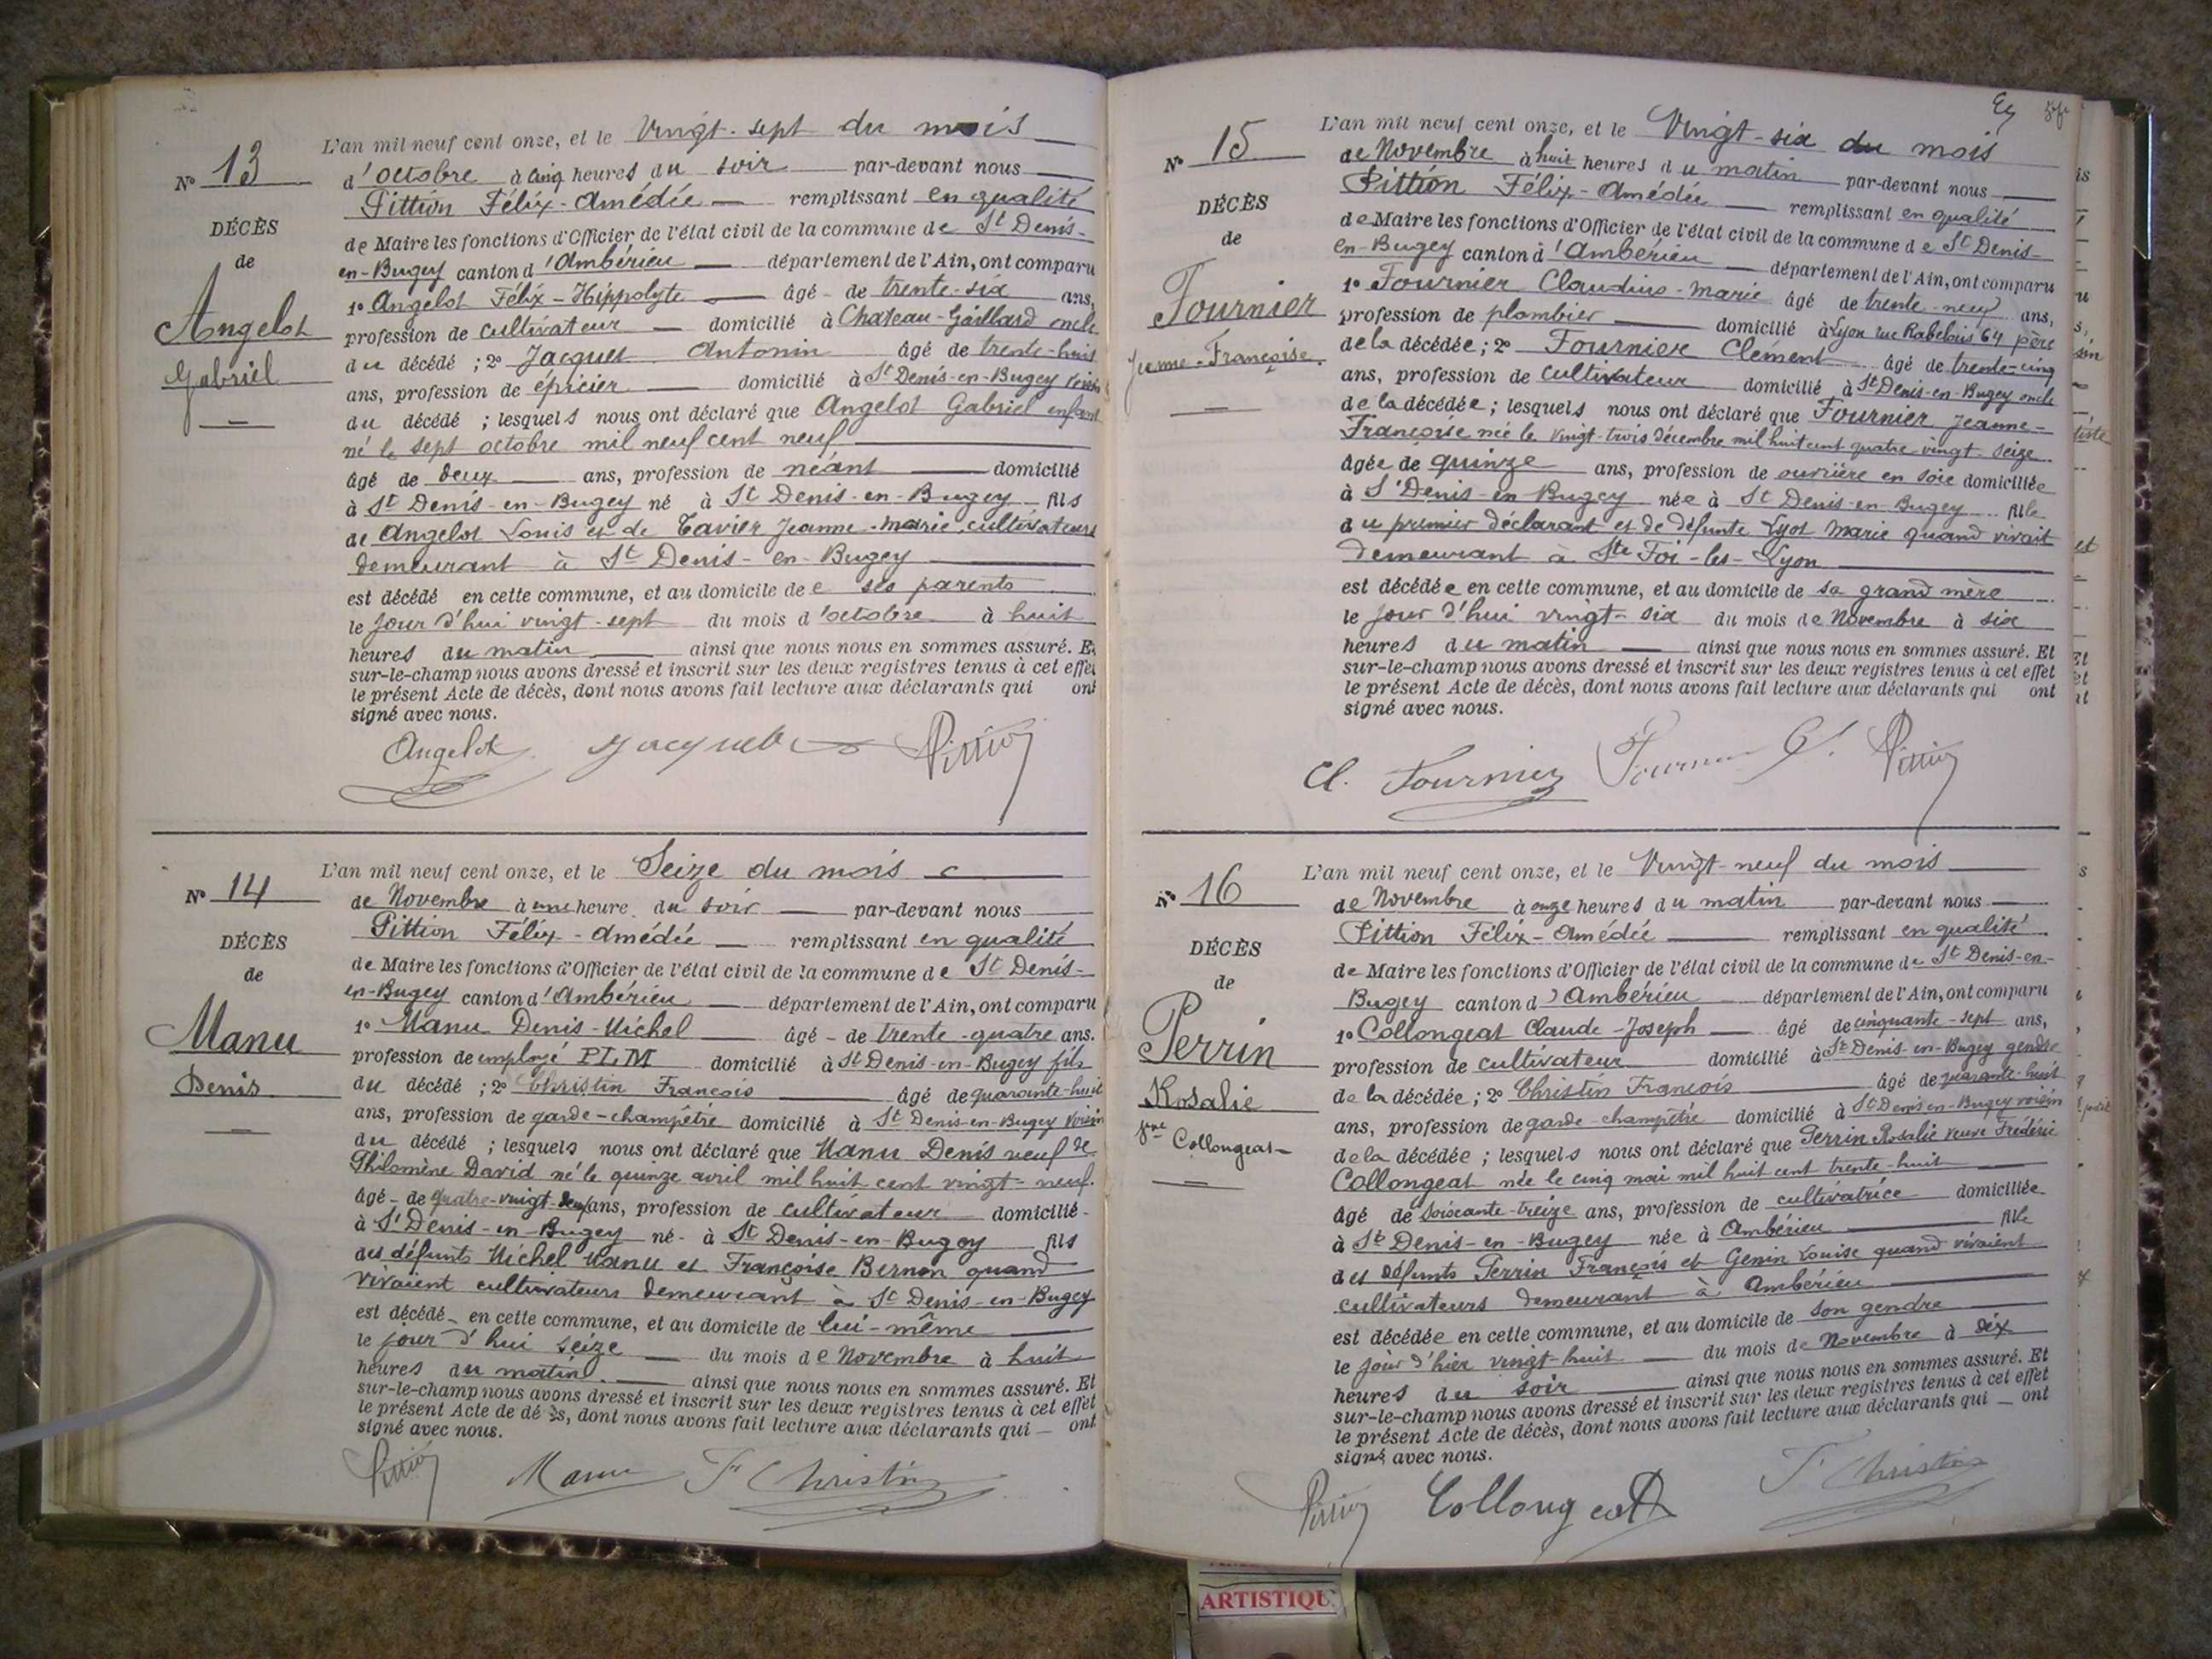 L'an mil neuf cent onze, et le Vingt-sept du mois
N° 13
d'octobre à cinq heures du soir par-devant nous
Pittion Félix-Amédée remplissant en qualité
DÉCÈS
de Maire les fonctions d'Officier de l'état civil de la commune de St Denis-
de
en-Bugey canton d'Ambérieu département de l'Ain, ont comparu
1° Angelot Félix-Hippolyte âgé de trente-six ans,
Angelot
profession de cultivateur domicilié à Chateau-Gaillard oncle
du décédé ; 2° Jacquet Antonin âgé de trente-huit
Gabriel
ans, profession de épicier domicilié à St Denis-en-Bugey voisin
du décédé ; lesquels nous ont déclaré que Angelot Gabriel enfant
né le sept octobre mil neuf cent neuf
âgé de deux ans, profession de néant domicilié
à St Denis-en-Bugey né à St Denis-en-Bugey fils
de Angelot Louis et de Tavier Jeanne-Marie, cultivateurs
demeurant à St Denis-en-Bugey
est décédé en cette commune, et au domicile de e ses parents
le jour d'hui vingt-sept du mois d'octobre à huit
heures du matin ainsi que nous nous en sommes assuré. Et
sur-le-champ nous avons dressé et inscrit sur les deux registres tenus à cet effet
le présent Acte de décès, dont nous avons fait lecture aux déclarants qui ont
signé avec nous.
Angelot Jacquet Pittion
L'an mil neuf cent onze, et le Seize du mois
N° 14
de Novembre à une heure du soir par-devant nous
Pittion Félix-Amédée remplissant en qualité
DÉCÈS
de Maire les fonctions d'Officier de l'état civil de la commune de St Denis-
de
en-Bugey canton d'Ambérieu département de l'Ain, ont comparu
1° Manu Denis-Michel âgé de trente-quatre ans.
Manu
profession de employé PLM domicilié à St Denis-en-Bugey fils
Denis
du décédé ; 2° Christin François âgé de quarante-huit
ans, profession de garde-champêtre domicilié à St Denis-en-Bugey voisin
du décédé ; lesquels nous ont déclaré que Manu Denis veuf de
Philomène David né le quinze avril mil huit cent vingt-neuf.
âgé de quatre-vingt-deux ans, profession de cultivateur domicilié
à St Denis-en-Bugey né à St Denis-en-Bugey fils
des défunts Michel Manu et Françoise Bernon quand
vivaient cultivateurs demeurant à St Denis-en-Bugey
est décédé en cette commune, et au domicile de lui-même
le jour d'hui seize du mois de Novembre à huit
heures du matin. ainsi que nous nous en sommes assuré. Et
sur-le-champ nous avons dressé et inscrit sur les deux registres tenus à cet effet
le présent Acte de décès, dont nous avons fait lecture aux déclarants qui ont
signé avec nous.
Pittion Manu F Christin
L'an mil neuf cent onze, et le Vingt-six du mois
N° 15
de Novembre à huit heures du matin par-devant nous
Pittion Félix-Amédée remplissant en qualité
DÉCÈS
de Maire les fonctions d'Officier de l'état civil de la commune de St Denis-
de
en-Bugey canton d'Ambérieu département de l'Ain, ont comparu
1° Fournier Claudius-Marie âgé de trente-neuf ans,
Fournier
profession de plombier domicilié à Lyon rue Rabelais 64 père
de la décédée ; 2° Fournier Clément âgé de trente-cinq
Jeanne-Françoise
ans, profession de cultivateur domicilié à St Denis-en-Bugey oncle
de la décédée ; lesquels nous ont déclaré que Fournier Jeanne-
Françoise née le vingt-trois décembre mil huit cent quatre-vingt-seize
âgée de quinze ans, profession de ouvrière en soie domiciliée
à St Denis-en-Bugey née à St Denis-en-Bugey fille
du premier déclarant et de défunte Lyot Marie quand vivait
demeurant à Ste Foi-les-Lyon
est décédée en cette commune, et au domicile de sa grand mère
le jour d'hui vingt-six du mois de Novembre à six
heures du matin ainsi que nous nous en sommes assuré. Et
sur-le-champ nous avons dressé et inscrit sur les deux registres tenus à cet effet
le présent Acte de décès, dont nous avons fait lecture aux déclarants qui ont
signé avec nous.
Cl. Fournier Fournier Cl. Pittion
L'an mil neuf cent onze, et le Vingt-neuf du mois
N° 16
de Novembre à onze heures du matin par-devant nous
Pittion Félix-Amédée remplissant en qualité
DÉCÈS
de Maire les fonctions d'Officier de l'état civil de la commune de St Denis-en-
de
Bugey canton d'Ambérieu département de l'Ain, ont comparu
1° Collongeat Claude-Joseph âgé de cinquante-sept ans,
Perrin
profession de cultivateur domicilié à St Denis-en-Bugey gendre
de la décédée ; 2° Christin François âgé de quarante-huit
Rosalie
ans, profession de garde-champêtre domicilié à St Denis-en-Bugey voisin
Collongeat
de la décédée ; lesquels nous ont déclaré que Perrin Rosalie veuve Frédéric
Collongeat née le cinq mai mil huit cent trente-huit
âgé de soixante-treize ans, profession de cultivatrice domiciliée
à St Denis-en-Bugey née à Ambérieu fille
des défunts Perrin François et Genin Louise quand vivaient
cultivateurs demeurant à Ambérieu
est décédée en cette commune, et au domicile de son gendre
le jour d'hier vingt-huit du mois de Novembre à dix
heures du soir ainsi que nous nous en sommes assuré. Et
sur-le-champ nous avons dressé et inscrit sur les deux registres tenus à cet effet
le présent Acte de décès, dont nous avons fait lecture aux déclarants qui ont
signé avec nous.
Pittion Collongeat F Christin
ARTISTIQU